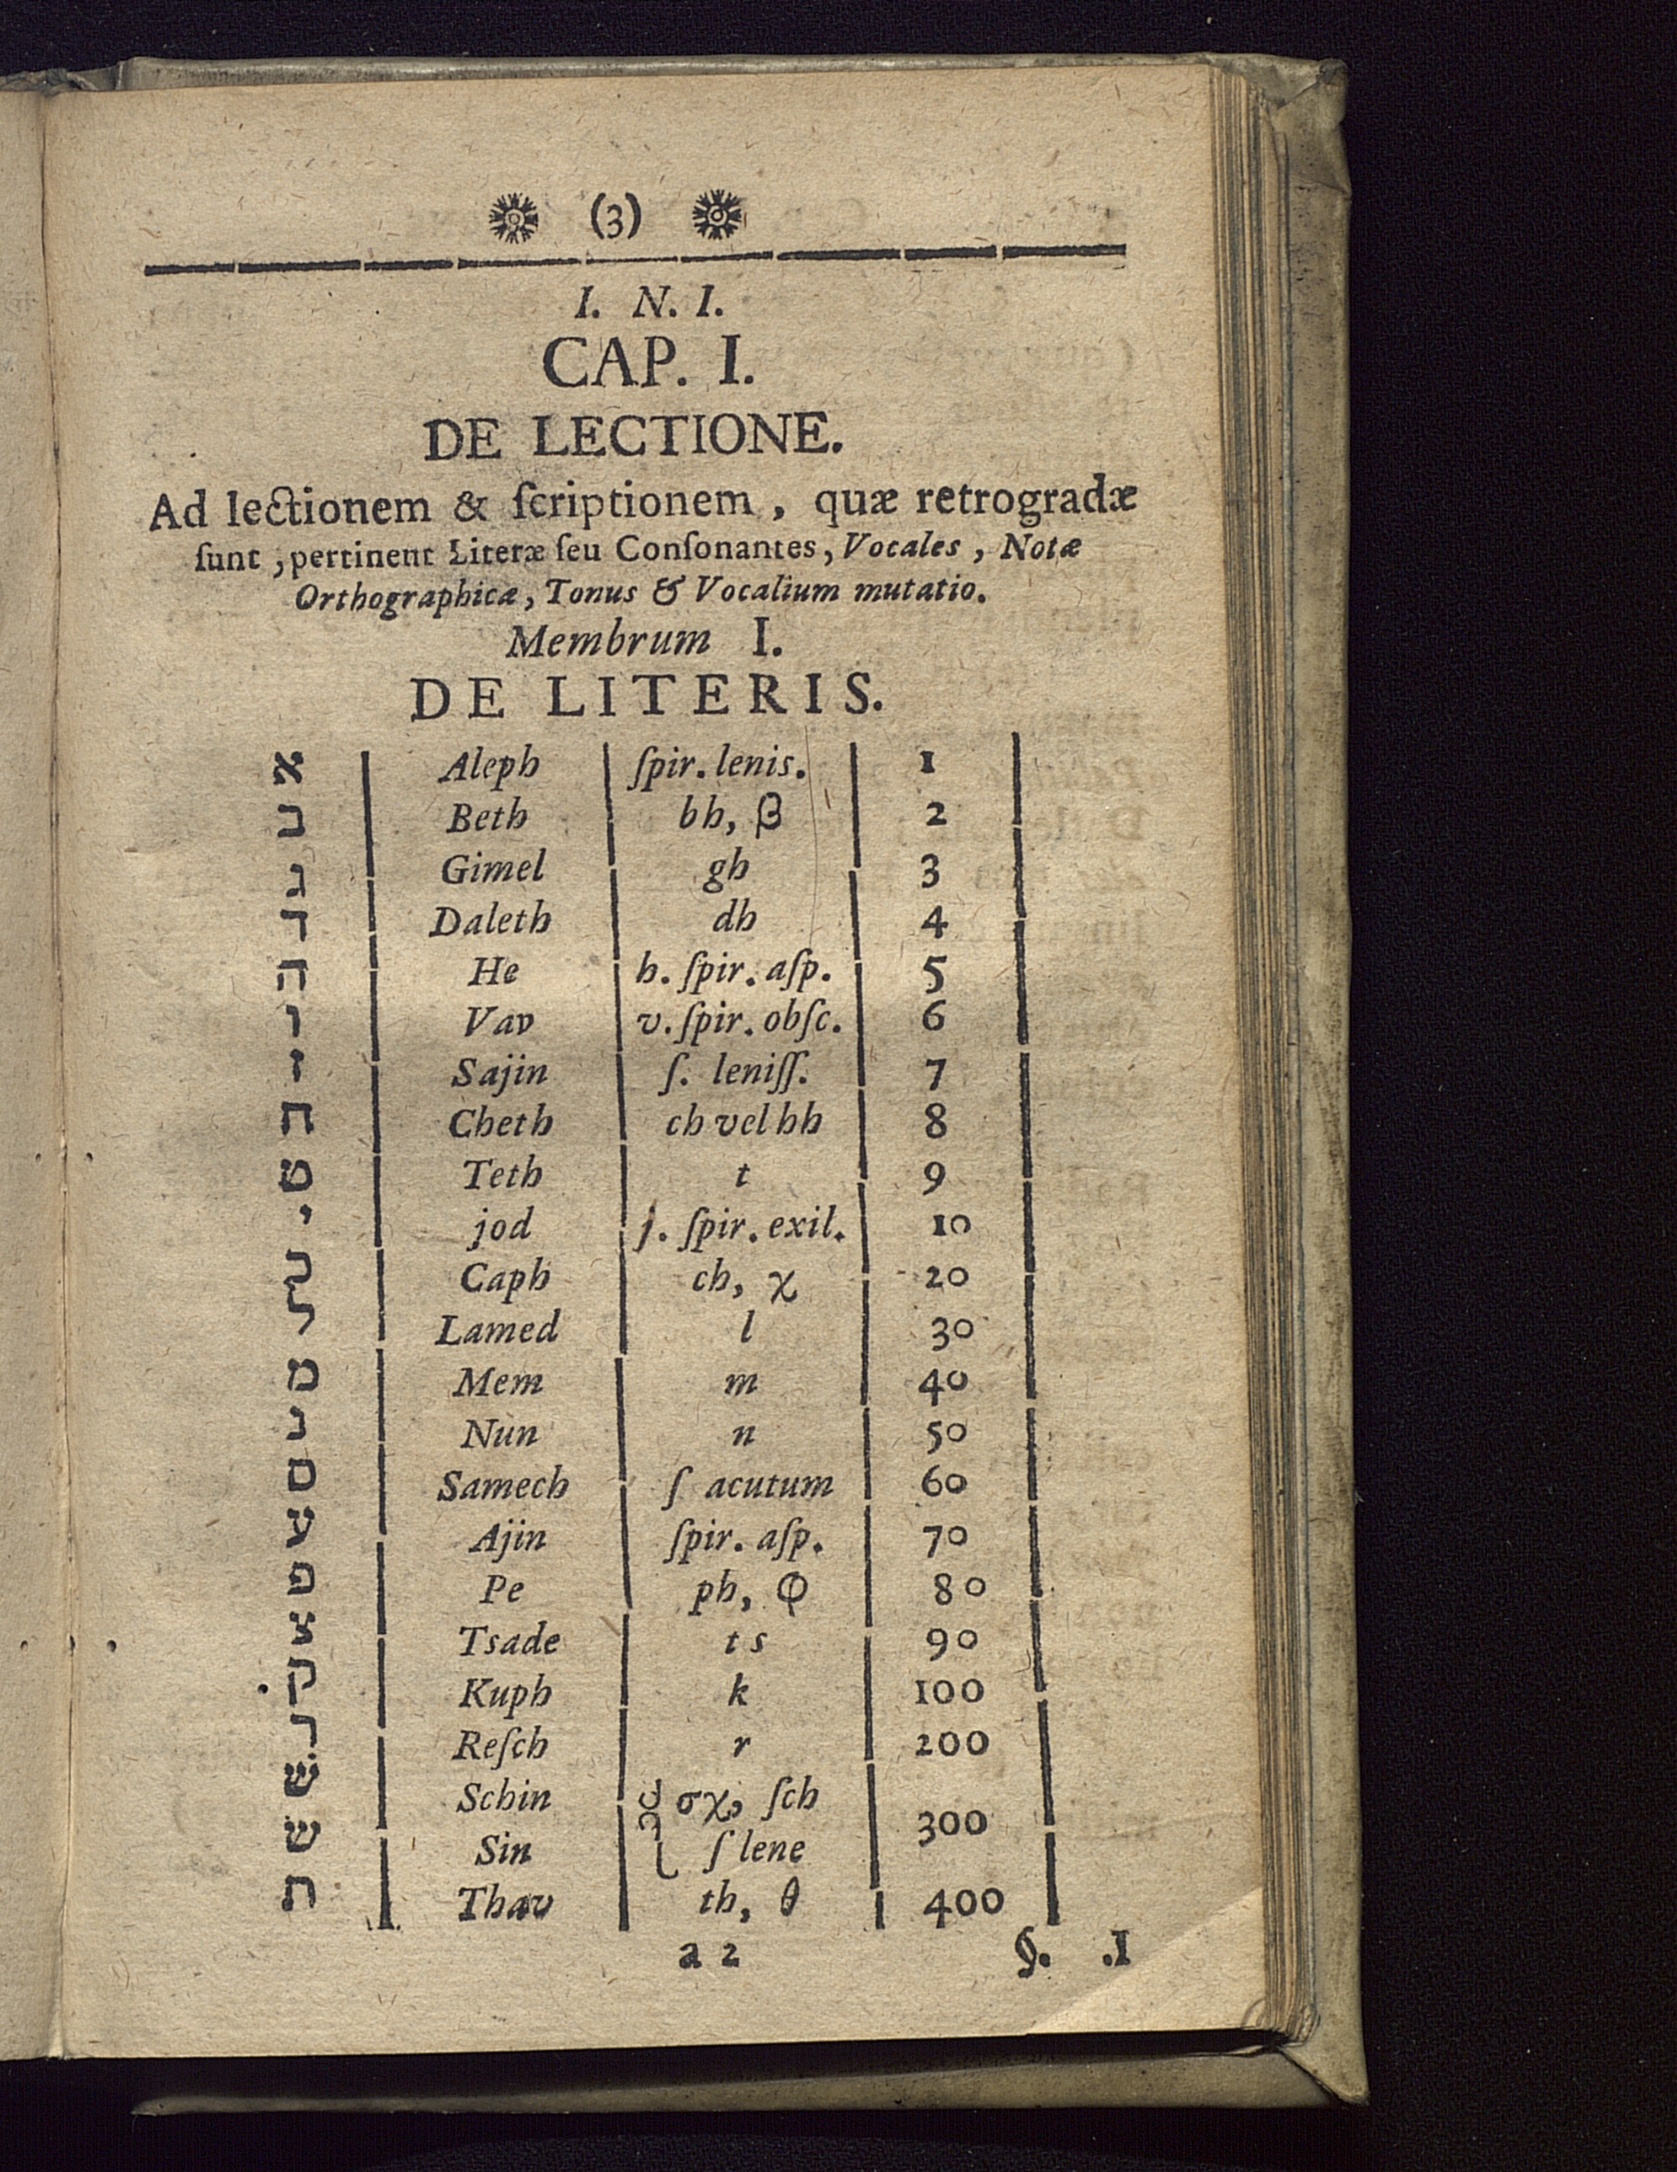 (3)
I. N. I.
CAP. I.
DE LECTIONE.
Ad lectionem & ſcriptionem, quæ retrogradæ
ſunt, pertinent Literæ ſeu Conſonantes, Vocales, Notæ
Orthographicæ, Tonus & Vocalium mutatio.
Membrum I.
DE LITERIS.
א Aleph ſpir. lenis. 1
ב Beth bh, β 2
ג Gimel gh 3
ד Daleth dh 4
ה He h. ſpir. aſp. 5
ו Vav v. ſpir. obſc. 6
ז Sajin ſ. leniſſ. 7
ח Cheth ch vel hh 8
ט Teth t 9
י jod j. ſpir. exil. 10
כ Caph ch, χ 20
ל Lamed l 30
מ Mem m 40
נ Nun n 50
ס Samech ſ acutum 60
ע Ajin ſpir. aſp. 70
פ Pe ph, φ 80
צ Tsade ts 90
ק Kuph k 100
ר Reſch r 200
שׁ Schin σχ, ſch 300
שׂ Sin ſ lene
ת Thav th, θ 400
a 2 §. .I